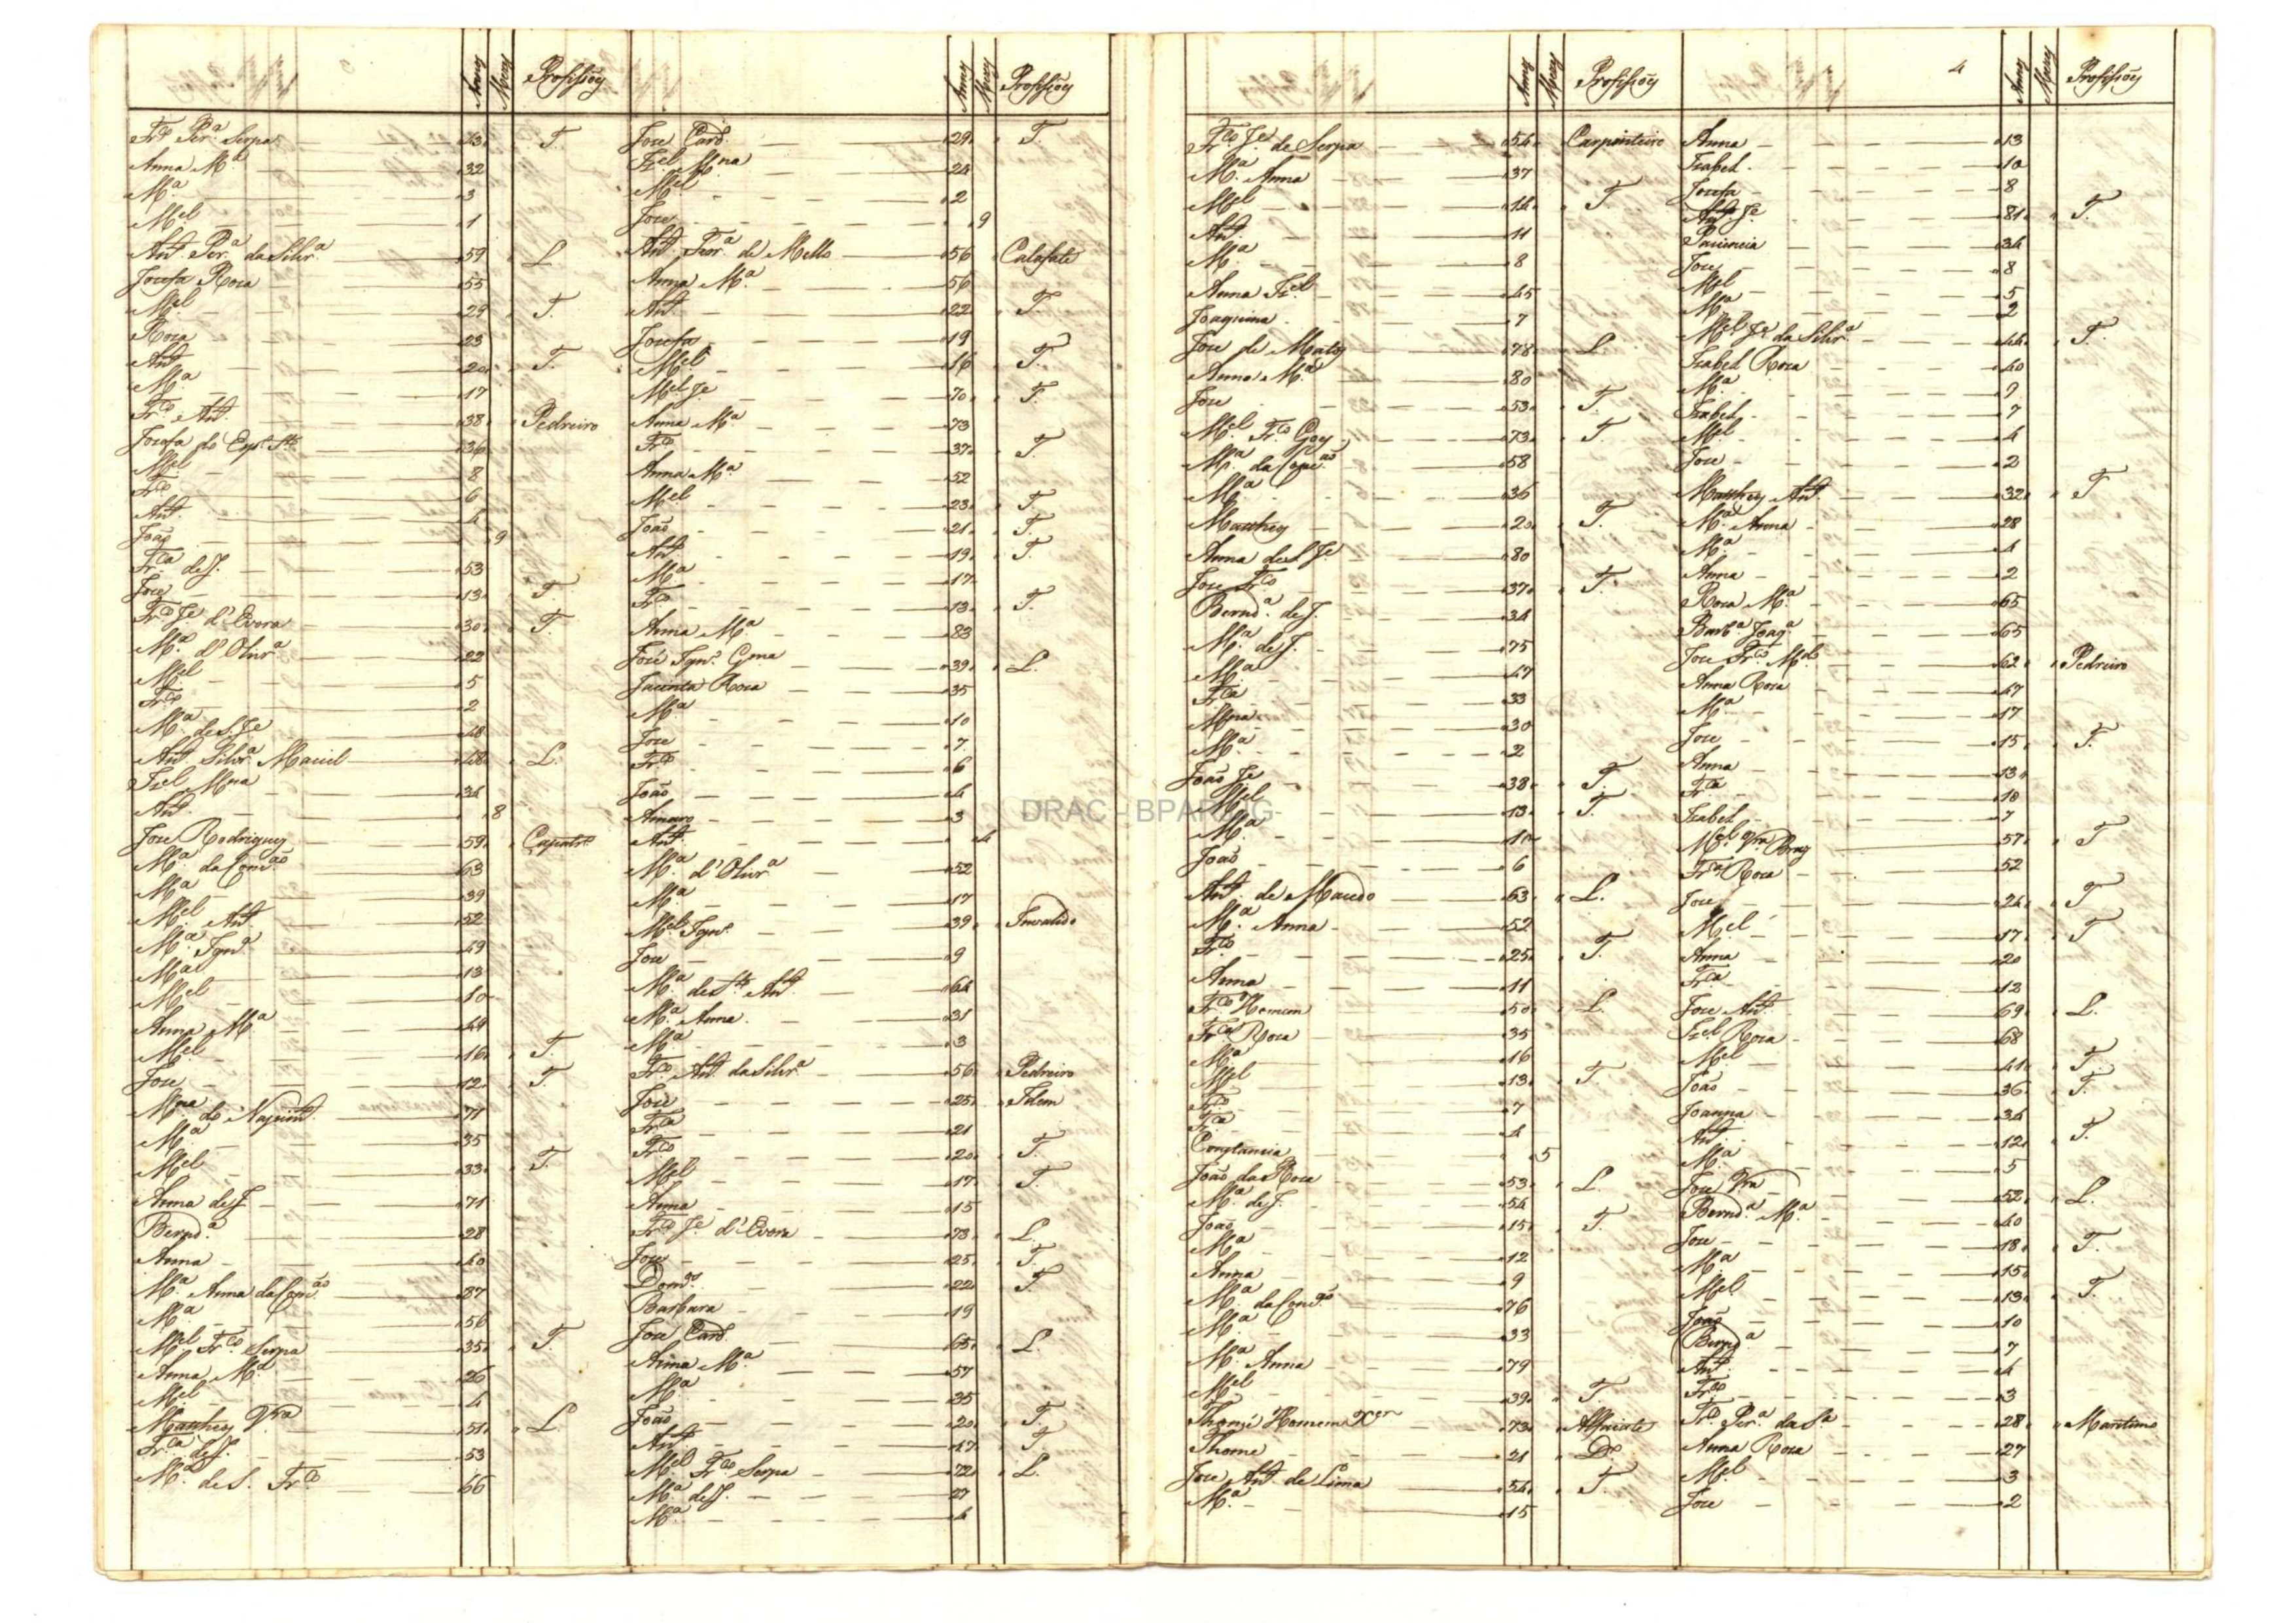 Annos Mezes Profissões Annos Mezes Profissões
Fr.co Per.a Serpa 43 T.
Anna M.a 32
M.a 3
M.el 1
Ant.o Per.a da Silv.a 59 L.
Josefa Roza 55
M.el 29 T.
Roza 23
Ant.o 20 T.
M.a 17
Fr.co Ant.o 38 Pedreiro
Josefa do Esp.to S.to 36
M.el 8
Fr.co 6
Ant.o 4
João 9
Fr.ca de J. 53
Joze 13 T.
Fr.co Je d'Evora 30 T.
M.a d'Oliv.a 22
M.el 5
Fr.co 2
M.a de S. Je 48
Ant.o Silv.a Maciel 48 L.
Izel M.na 34
Ant.o 8
Joze Rodrigues 59 Carpintr.o
M.a da Conc.ão 63
M.a 39
M.el Ant.o 52
M.a Ign.a 49
M.el 13
M.el 10
Anna M.a 49
M.el 16 T.
Joze 12 T.
M.na do Nascim.to 71
M.a 35
M.el 33 T.
Anna de J. 71
Bernd.a 28
Anna 40
M.a Anna da Conc.ão 87
M.a 56
M.el Fr.co Serpa 35 T.
Anna M.a 26
M.el 4
Matheus Vra 51 L.
Fr.ca de J. 53
M.a de S. Fr.co 66
Joze Card.o 29 T.
Izel M.na 24
M.el 2
Joze 9
Ant.o Ferr.a de Mello 56 Calafate
Anna M.a 56
Ant.o 22 T.
Josefa 19
M.el 16 T.
M.el Je 70 T.
Anna M.a 73
Fr.co 37 T.
Anna M.a 52
M.el 23 T.
João 21 T.
Ant.o 19 T.
M.a 17
Fr.co 13 T.
Anna M.a 83
Joze Ign.o Gona 39 L.
Jacinta Roza 35
M.a 10
Joze 7
Fr.co 6
João 4
Amaro 3
Ant.o 4
M.a d'Oliv.a 52
M.a 17
M.el Ign.o 39 Invalido
Joze 9
M.a de S.to Ant.o 64
M.a Anna 31
M.a 3
Fr.co Ant.o da Silv.a 56 Pedreiro
Joze 25 Idem
Fr.ca 21
Fr.co 20 T.
M.el 17 T.
Anna 15
Fr.co Je d'Evora 73 L.
Joze 25 T.
Dom.os 22 T.
Barbara 19
Joze Card.o 65 L.
Anna M.a 57
M.a 35
João 20 T.
Ant.o 17 T.
M.el Fr.co Serpa 72 L.
M.a de J. 27
M.a 4
4
Annos Mezes Profissões Annos Mezes Profissões
Fr.co Je de Serpa 54 Carpinteiro
M.a Anna 37
M.el 14 T.
Ant.o 11
M.a 8
Anna Izel 45
Joaquina 7
Joze de Matos 78 L.
Anna M.a 80
Joze 53 T.
M.el Fr.co Goes 73 T.
M.a da Conc.ão 58
M.a 36
Matheus 20 T.
Anna de S. Je 80
Joze Fr.co 37 T.
Bernd.a de J. 34
M.a de J. 75
M.a 47
Fr.ca 33
M.na 30
M.a 2
João Je 38 T.
M.el 13 T.
M.a 10
João 6
Ant.o de Macedo 63 L.
M.a Anna 52
Fr.co 25 T.
Anna 11
Fr.co Homem 50 L.
Fr.ca Roza 35
M.a 16
M.el 13 T.
Fr.co 7
Fr.ca 4
Constancia 5
João da Roza 53 L.
M.a de J. 54
João 15 T.
M.a 12
Anna 9
M.a da Conc.ão 76
M.a 33
M.a Anna 79
M.el 39 T.
Thomé Homem Xer 73 Alfaiate
Thomé 21 D.o
Joze Ant.o de Lima 54 T.
M.a 15
Anna 13
Izabel 10
Josefa 8
Ant.o Je 81 T.
Paciencia 34
Joze 8
M.el 5
M.a 2
M.el Je da Silv.a 44 T.
Izabel Roza 40
M.a 9
Izabel 7
M.el 4
Joze 2
Matheus Ant.o 32 T.
M.a Anna 28
M.a 4
Anna 2
Roza M.a 65
Barb.a Joaq.a 65
Joze Fr.co M.do 62 Pedreiro
Anna Roza 47
M.a 17
Joze 15 T.
Anna 13
Fr.ca 10
Izabel 7
M.el Vra Braz 57 T.
Fr.ca Roza 52
Joze 24 T.
M.el 17 T.
Anna 20
Fr.ca 12
Joze Ant.o 69 L.
Izel Roza 68
M.el 41 T.
João 36 T.
Joanna 34
Ant.o 12 T.
M.a 5
Joze Vra 52 L.
Bernd.a M.a 40
Joze 18 T.
M.a 15
M.el 13 T.
João 10
Bernd.a 7
Ant.o 4
Fr.co 3
Fr.co Per.a da S.a 28 Maritimo
Anna Roza 27
M.el 3
Joze 2
DRAC - BPARJJG